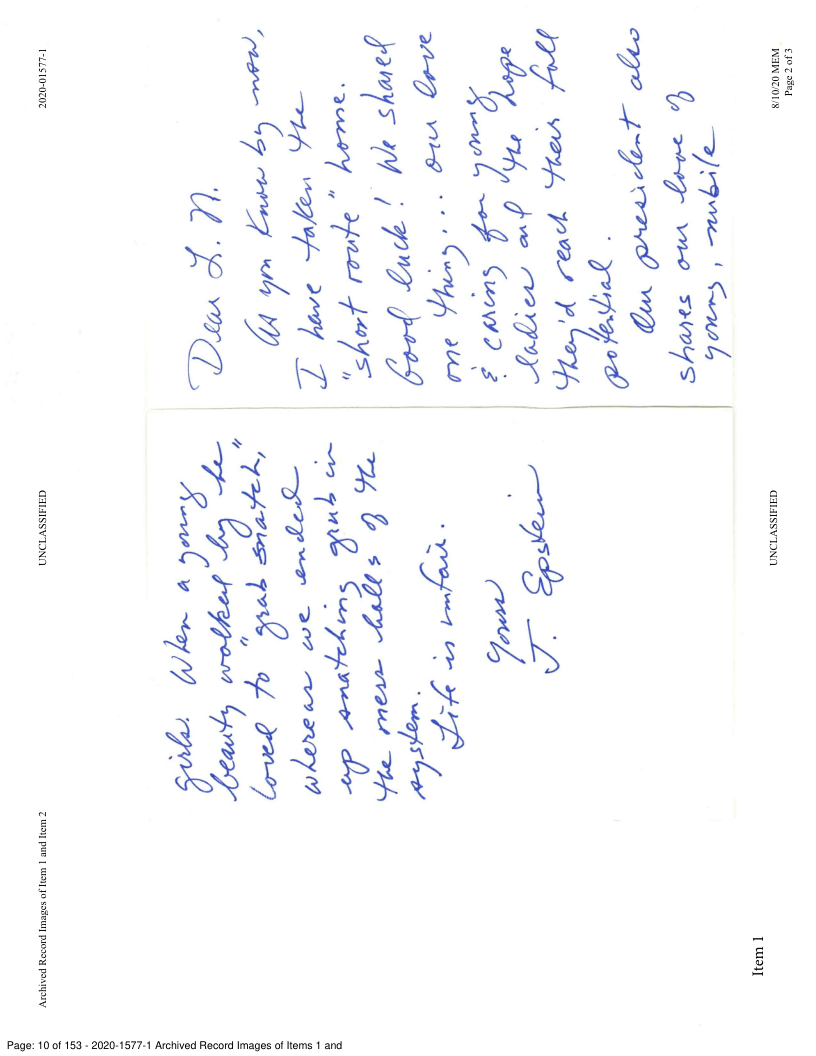 2020-01577-1
UNCLASSIFIED
Archived Record Images of Item 1 and Item 2
Dear L. N.
As you know by now,
I have taken the
"short route" home.
Good luck! We shared
one thing... our love
& caring for young
ladies and the hope
they'd reach their full
potential.
Our president also
shares our love of
young, nubile
girls. When a young
beauty walked by he
loved to "grab snatch,"
whereas we ended
up snatching grub in
the mess halls of the
system.
Life is unfair.
Yours
J. Epstein
8/10/20 MEM
Page 2 of 3
UNCLASSIFIED
Item 1
Page: 10 of 153 - 2020-1577-1 Archived Record Images of Items 1 and